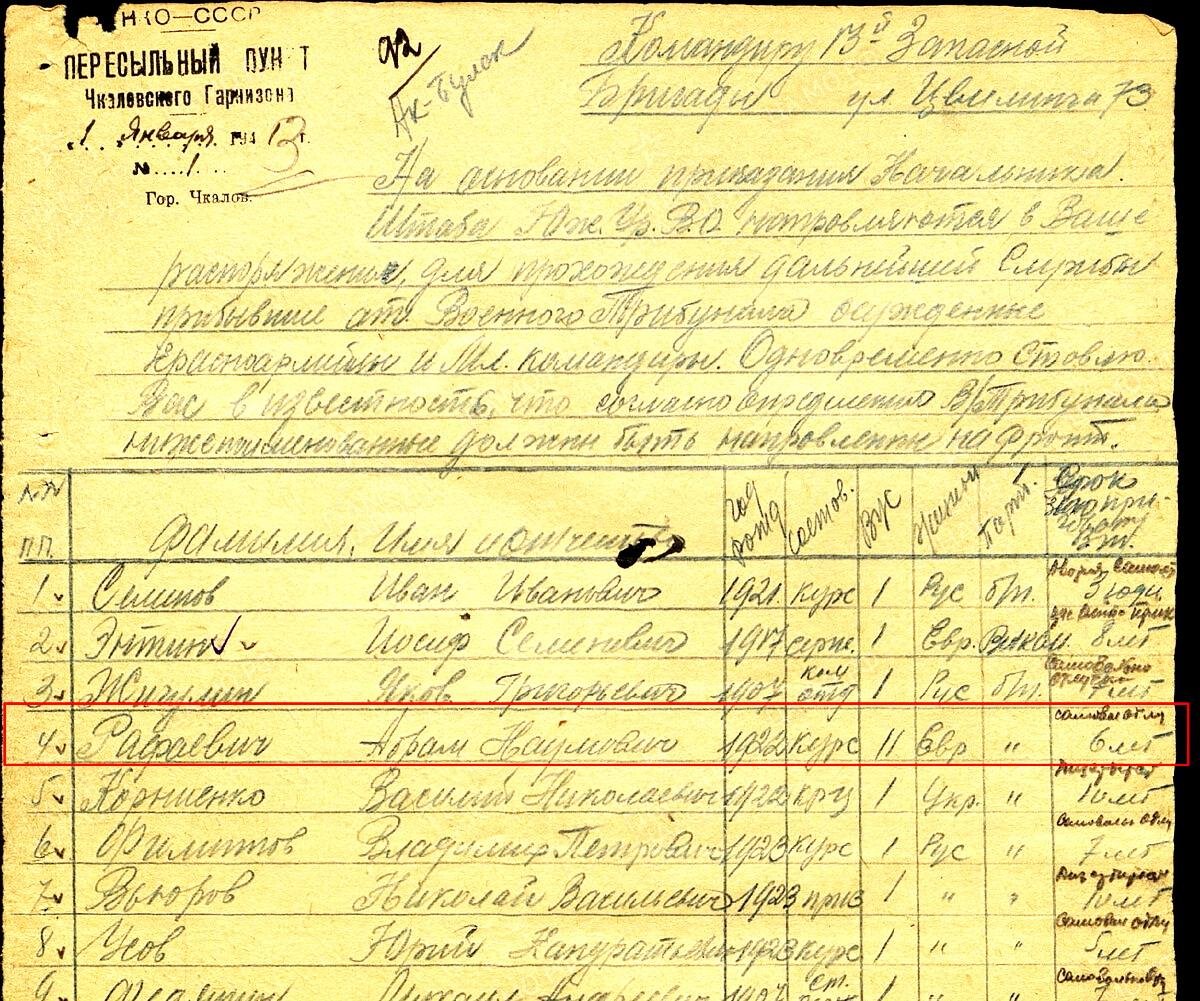 НКО—СССР
ПЕРЕСЫЛЬНЫЙ ПУНКТ
Чкаловского Гарнизона
1 Января 1943 г.
№ 1
Гор. Чкалов.
Ак-Булак
Командиру 13й Запасной
Бригады ул. Цвилинга 73
На основании приказания Начальника
Штаба Юж. Ур. В.О. направляются в Ваше
распоряжение, для прохождения дальнейшей Службы
прибывшие от Военного Трибунала осужденные
Красноармейцы и Мл. командиры. Одновременно ставлю
Вас в известность, что согласно определению В/Трибунала
нижепоименованные должны быть направлены на фронт.
п.п. Фамилия, Имя и отчество Год рожд состов. ВУС Национ Парт. Срок
1 Семипов Иван Иванович 1921 курс 1 Рус б/п. 3 года
2 Энтин Иосиф Семенович 1917 серж. 1 Евр. 8 лет
3 Жигулин Яков Григорьевич 1907 ком отд 1 Рус б/п. 7 лет
4 Рафаевич Абрам Наумович 1922 курс 11 Евр " самовол отлу 6 лет
5 Корниенко Василий Николаевич 1922 крц 1 Укр. " 10 лет
6 Филиппов Владимир Петрович 1923 курс 1 Рус " самовол отлу 7 лет
7 Вьюров Николай Васильевич 1923 приз 1 " " 10 лет
8 Усов Юрий 1923 курс 1 " " самовол отлу 5 лет
9 Михаил Андреевич 1907 ст. 1 " "